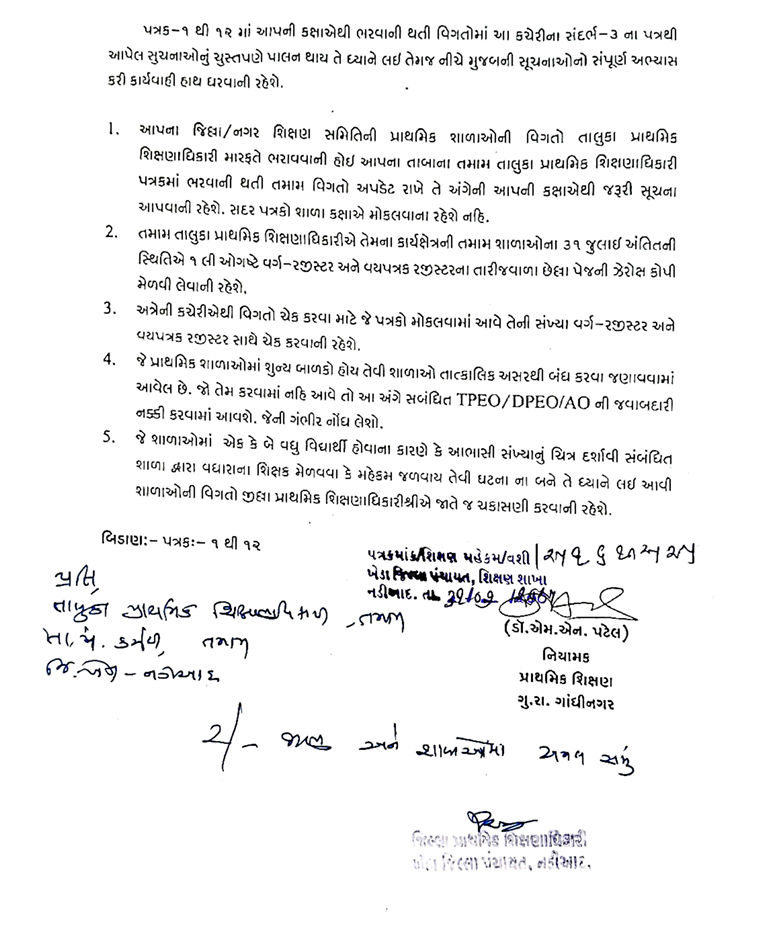 પત્રક-૧ થી ૧૨ માં આપની કક્ષાએથી ભરવાની થતી વિગતોમાં આ કચેરીના સંદર્ભ-૩ ના પત્રથી
આપેલ સુચનાઓનું ચુસ્તપણે પાલન થાય તે ધ્યાને લઇ તેમજ નીચે મુજબની સૂચનાઓનો સંપૂર્ણ અભ્યાસ
કરી કાર્યવાહી હાથ ધરવાની રહેશે.
1. આપના જિલ્લા/નગર શિક્ષણ સમિતિની પ્રાથમિક શાળાઓની વિગતો તાલુકા પ્રાથમિક
શિક્ષણાધિકારી મારફતે ભરાવવાની હોઇ આપના તાબાના તમામ તાલુકા પ્રાથમિક શિક્ષણાધિકારી
પત્રકમાં ભરવાની થતી તમામ વિગતો અપડેટ રાખે તે અંગેની આપની કક્ષાએથી જરૂરી સૂચના
આપવાની રહેશે. સદર પત્રકો શાળા કક્ષાએ મોકલવાના રહેશે નહિ.
2. તમામ તાલુકા પ્રાથમિક શિક્ષણાધિકારીએ તેમના કાર્યક્ષેત્રની તમામ શાળાઓના ૩૧ જુલાઇ અંતિતની
સ્થિતિએ ૧ લી ઓગષ્ટે વર્ગ-રજીસ્ટર અને વયપત્રક રજીસ્ટરના તારીજવાળા છેલ્લા પેજની ઝેરોક્ષ કોપી
મેળવી લેવાની રહેશે.
3. અત્રેની કચેરીએથી વિગતો ચેક કરવા માટે જે પત્રકો મોકલવામાં આવે તેની સંખ્યા વર્ગ-રજીસ્ટર અને
વયપત્રક રજીસ્ટર સાથે ચેક કરવાની રહેશે.
4. જે પ્રાથમિક શાળાઓમાં શુન્ય બાળકો હોય તેવી શાળાઓ તાત્કાલિક અસરથી બંધ કરવા જણાવવામાં
આવેલ છે. જો તેમ કરવામાં નહિ આવે તો આ અંગે સબંધિત TPEO/DPEO/AO ની જવાબદારી
નક્કી કરવામાં આવશે. જેની ગંભીર નોંધ લેશો.
5. જે શાળાઓમાં એક કે બે વધુ વિદ્યાર્થી હોવાના કારણે કે આભાસી સંખ્યાનું ચિત્ર દર્શાવી સંબંધિત
શાળા દ્વારા વધારાના શિક્ષક મેળવવા કે મહેકમ જળવાય તેવી ઘટના ના બને તે ધ્યાને લઇ આવી
શાળાઓની વિગતો જીલ્લા પ્રાથમિક શિક્ષણાધિકારીશ્રીએ જાતે જ ચકાસણી કરવાની રહેશે.
બિડાણ:- પત્રકઃ- ૧ થી ૧૨
પત્રક્માંક/શિક્ષણ મહેકમ/વશી/
ખેડા જિલ્લા પંચાયત, શિક્ષણ શાખા
નડીઆદ. તા.
પ્રતિ,
તાલુકા પ્રાથમિક શિક્ષણાધિકારી, તમામ
તા.પં. કચેરી, તમામ
જિ.ખેડા - નડીઆદ
(ડૉ.એમ.એન. પટેલ)
નિયામક
પ્રાથમિક શિક્ષણ
ગુ.રા. ગાંધીનગર
2/- જાણ અને શાળાઓમાં અમલ સારૂં
જિલ્લા પ્રાથમિક શિક્ષણાધિકારી
ખેડા જિલ્લા પંચાયત, નડીઆદ.